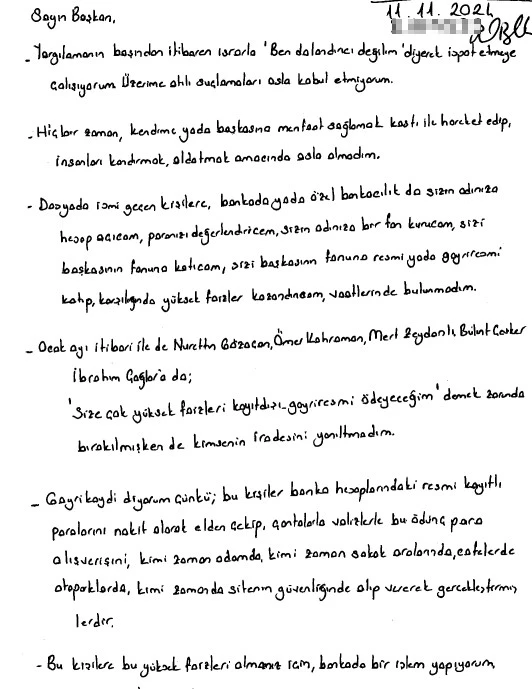 Sayın Başkan,
11.11.2024
- Yargılamanın başından itibaren ısrarla 'Ben dolandırıcı değilim' diyerek ispat etmeye
çalışıyorum üzerime atılı suçlamaları asla kabul etmiyorum.
- Hiçbir zaman, kendime yada başkasına menfaat sağlamak kastı ile hareket edip,
insanları kandırmak, aldatmak amacında asla olmadım.
- Dosyada ismi geçen kişilere, bankada yada özel bankacılık da sizin adınıza
hesap açıcam, paranızı değerlendiricem, sizin adınıza bir fon kurucam, sizi
başkasının fonuna katıcam, sizi başkasının fonuna resmi yada gayriresmi
katıp, karşılığında yüksek faizler kazandırıcam, vaatlerinde bulunmadım.
- Ocak ayı itibari ile de Nurettin Ömer Kahraman, Mert Zeydanlı, Bülent
İbrahim Çağlar'a da;
'Size çok yüksek faizleri kayıtdışı-gayriresmi ödeyeceğim' demek zorunda
bırakılmışken de kimsenin iradesini yanıltmadım.
- Gayrikaydi diyorum çünkü; bu kişiler banka hesaplarındaki resmi kayıtlı
paralarını nakit olarak elden çekip, çantalarla valizlerle bu ödünç para
alışverişini, kimi zaman odamda, kimi zaman sokak aralarında, cafelerde
otoparklarda, kimi zamanda sitenin güvenliğinde alıp vererek gerçekleştirmiş
lerdir.
- Bu kişilere bu yüksek faizleri almanız için, bankada bir işlem yapıyorum